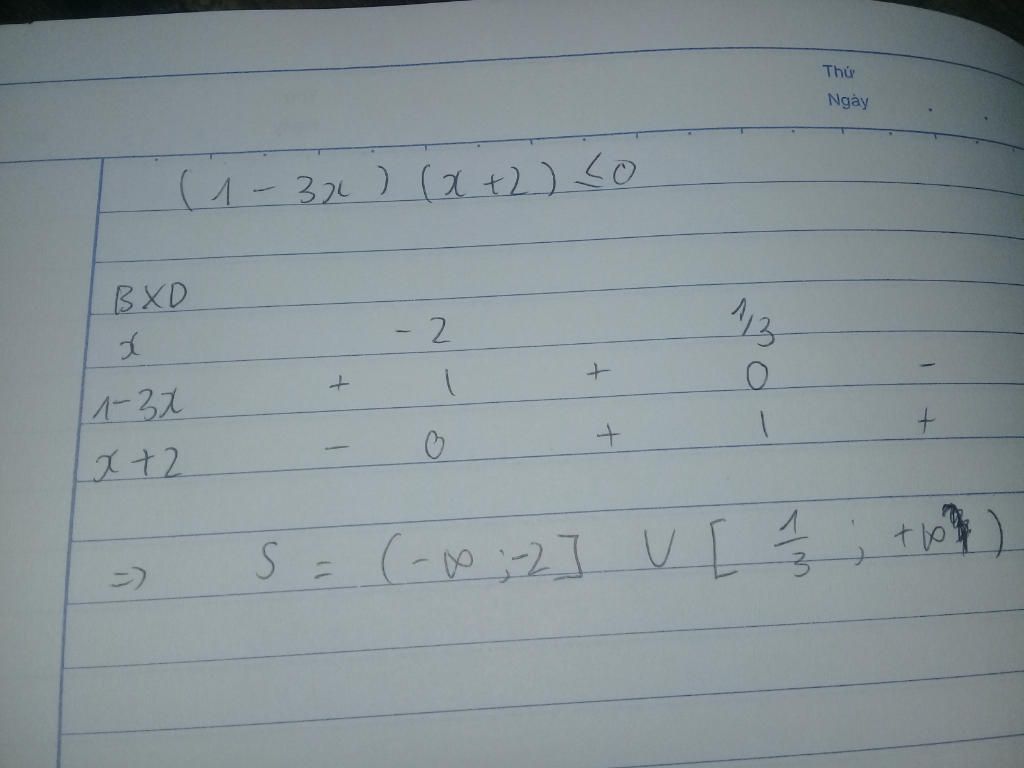 Thứ
Ngày
(1 - 3x) (x + 2) ≤ 0
BXD
x -2 1/3
1-3x + | + 0 -
x+2 - 0 + | +
=> S = (-∞ ; -2] ∪ [ 1/3 ; +∞ )